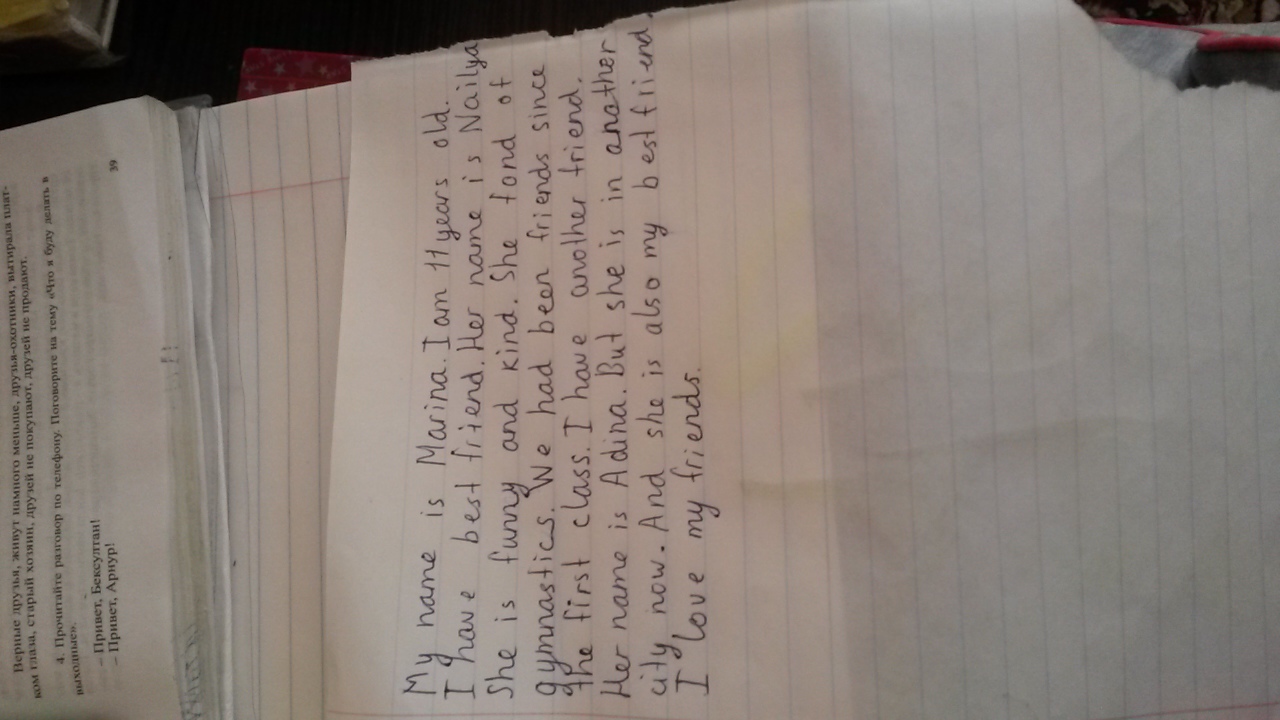 Верные друзья, живут намного меньше, друзья-охотники, вытирала плат-
ком глаза, старый хозяин, друзей не покупают, друзей не продают.
4. Прочитайте разговор по телефону. Поговорите на тему «Что я буду делать в
выходные».
– Привет, Бексултан!
– Привет, Арнур!
39
My name is Marina. I am 11 years old.
I have best friend. Her name is Nailya
She is funny and kind. She fond of
gymnastics. We had been friends since
the first class. I have another friend.
Her name is Adina. But she is in anather
city now. And she is also my best friend.
I love my friends.